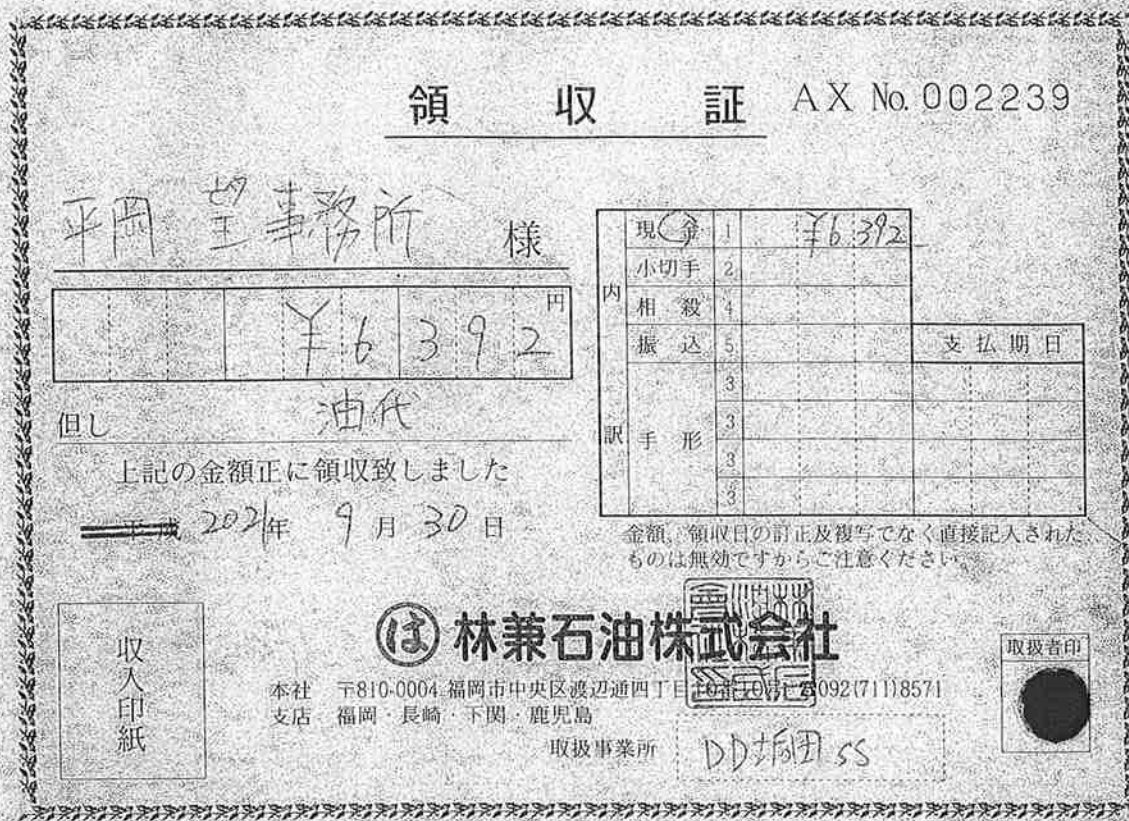 領収証 AX No. 002239
平岡 望事務所 様
¥6392円
但し 油代
上記の金額正に領収致しました
平成 2021年 9月 30日
内訳
現金 1 ¥6,392
小切手 2
相殺 4
振込 5 支払期日
手形 3
3
3
3
金額、領収日の訂正及複写でなく直接記入された、
ものは無効ですからご注意ください。
収入印紙
は 林兼石油株式会社
本社 〒810-0004 福岡市中央区渡辺通四丁目10番10号 ☎092(711)8571
支店 福岡・長崎・下関・鹿児島
取扱事業所 DD SS
取扱者印